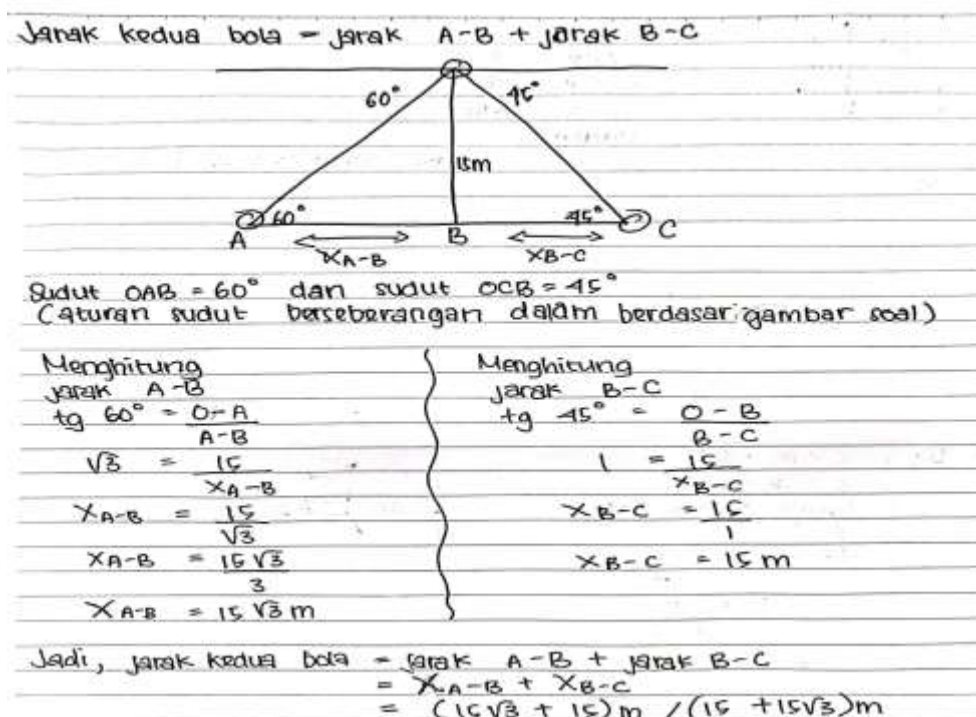 Jarak kedua bola = jarak A-B + jarak B-C
60° 45°
15m
60° 45°
A B C
XA-B XB-C
Sudut OAB = 60° dan sudut OCB = 45°
(aturan sudut berseberangan dalam berdasar gambar soal)
Menghitung
jarak A-B
tg 60° = O-A
A-B
√3 = 15
XA-B
XA-B = 15
√3
XA-B = 15√3
3
XA-B = 15√3 m
Menghitung
jarak B-C
tg 45° = O-B
B-C
1 = 15
XB-C
XB-C = 15
1
XB-C = 15 m
Jadi, jarak kedua bola = jarak A-B + jarak B-C
= XA-B + XB-C
= (15√3 + 15) m / (15 + 15√3) m